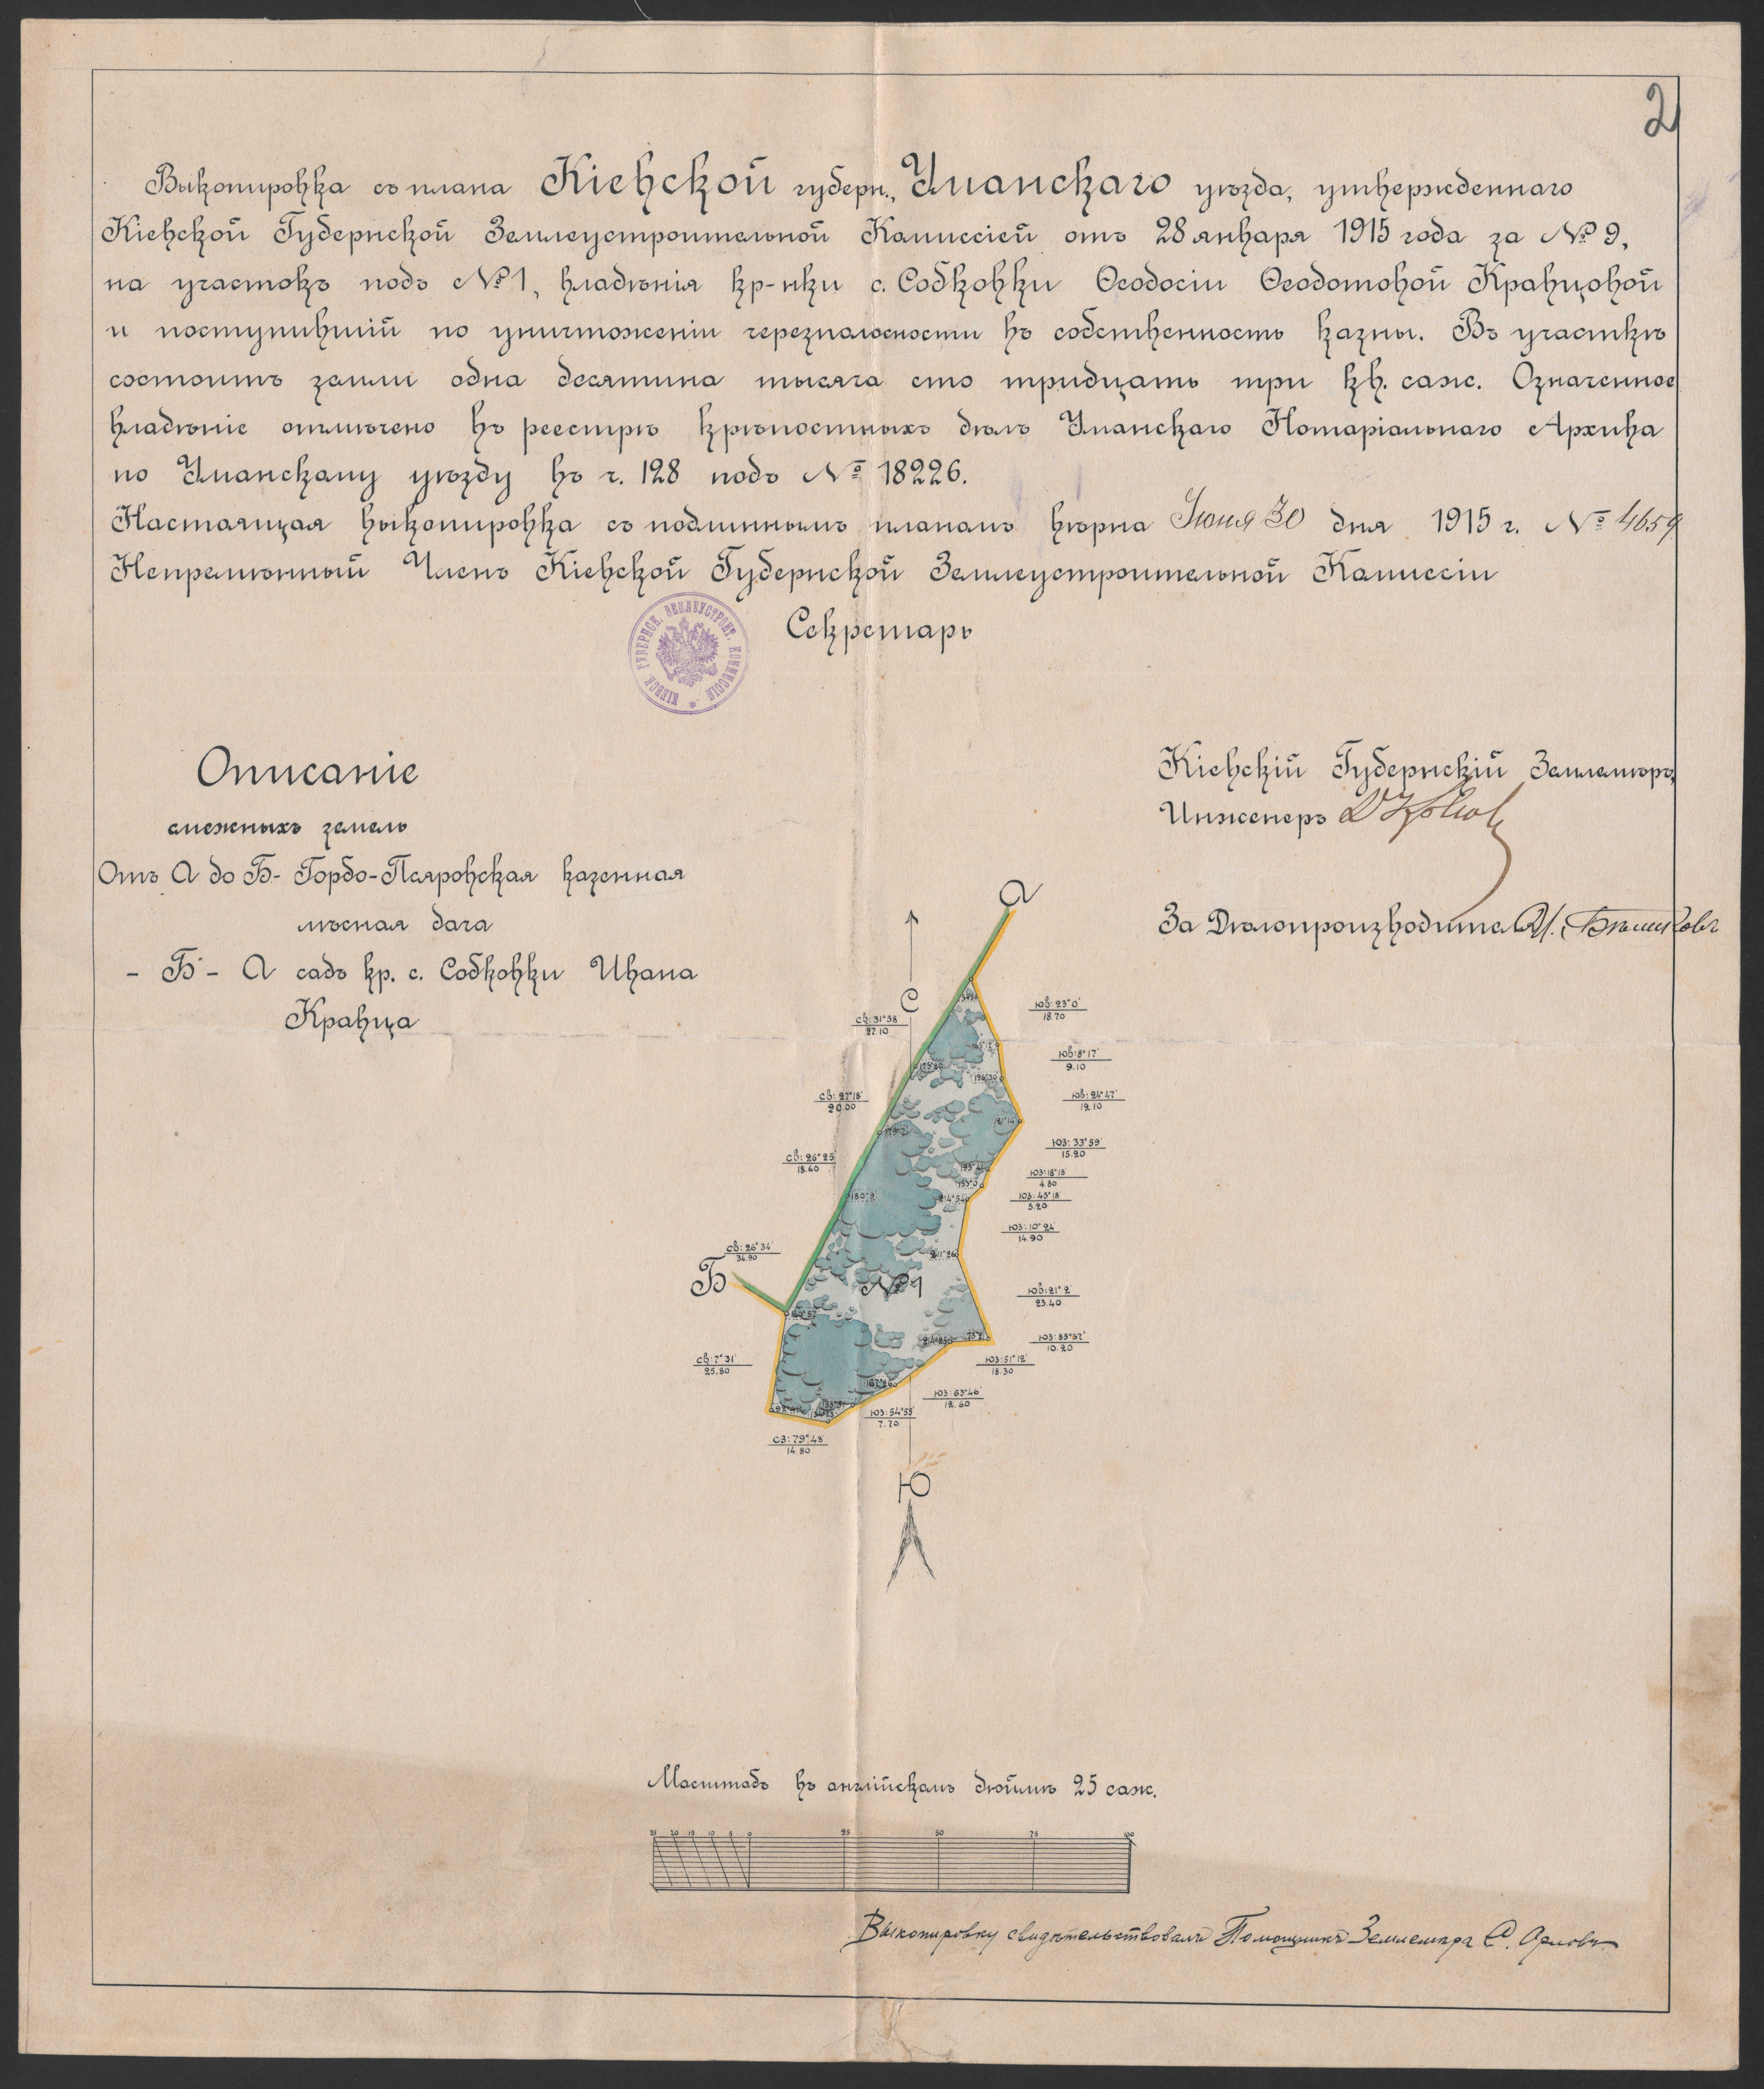 2
Выкопировка съ плана Кіевской губерн., Уманскаго уѣзда, утвержденнаго
Кіевской Губернской Землеустроительной Комиссіей отъ 28 января 1915 года за № 9,
на участокъ подъ № 1, владѣнія кр-нки с. Собковки Ѳеодосіи Ѳеодотовой Кравцовой
и поступившій по уничтоженіи черезполосности въ собственность казны. Въ участкѣ
состоитъ земли одна десятина тысяча сто тридцать три кв. саж. Означенное
владѣніе отмѣчено въ реестрѣ крѣпостныхъ дѣлъ Уманскаго Нотаріальнаго Архива
по Уманскому уѣзду въ ч. 128 подъ № 18226.
Настоящая выкопировка съ подлиннымъ планомъ вѣрна Іюня 30 дня 1915 г. № 4659
Непремѣнный Членъ Кіевской Губернской Землеустроительной Комиссіи
Секретарь
КІЕВСК. ГУБЕРНСК. ЗЕМЛЕУСТРОИТ. КОММИССІЯ *
Описаніе
смежныхъ земель
Отъ А до Б - Гордо-Пляровская казенная
лѣсная дача
- Б - А садъ кр. с. Собковки Ивана
Кравца
Кіевскій Губернскій Землемѣръ,
Инженеръ
За Дѣлопроизводителя
А
С
Б
№ 1
Ю
св: 31°38'
27.10
св: 27°18'
20.00
св: 26°25'
18.60
св: 26°34'
34.90
св: 7°31'
25.80
сз: 79°48'
14.80
юв: 23°0'
18.70
юв: 8°17'
9.10
юв: 24°47'
12.10
юз: 33°59'
15.20
юз: 18°18'
4.80
юз: 45°18'
5.20
юз: 10°24'
14.90
юв: 21°2'
23.40
юз: 85°37'
10.20
юз: 51°12'
18.30
юз: 63°46'
12.60
юз: 54°55'
7.70
Масштабъ въ англійскомъ дюймѣ 25 саж.
25 20 15 10 5 0 25 50 75 100
Выкопировку свидѣтельствовалъ Помощникъ Землемѣра С. Орловъ